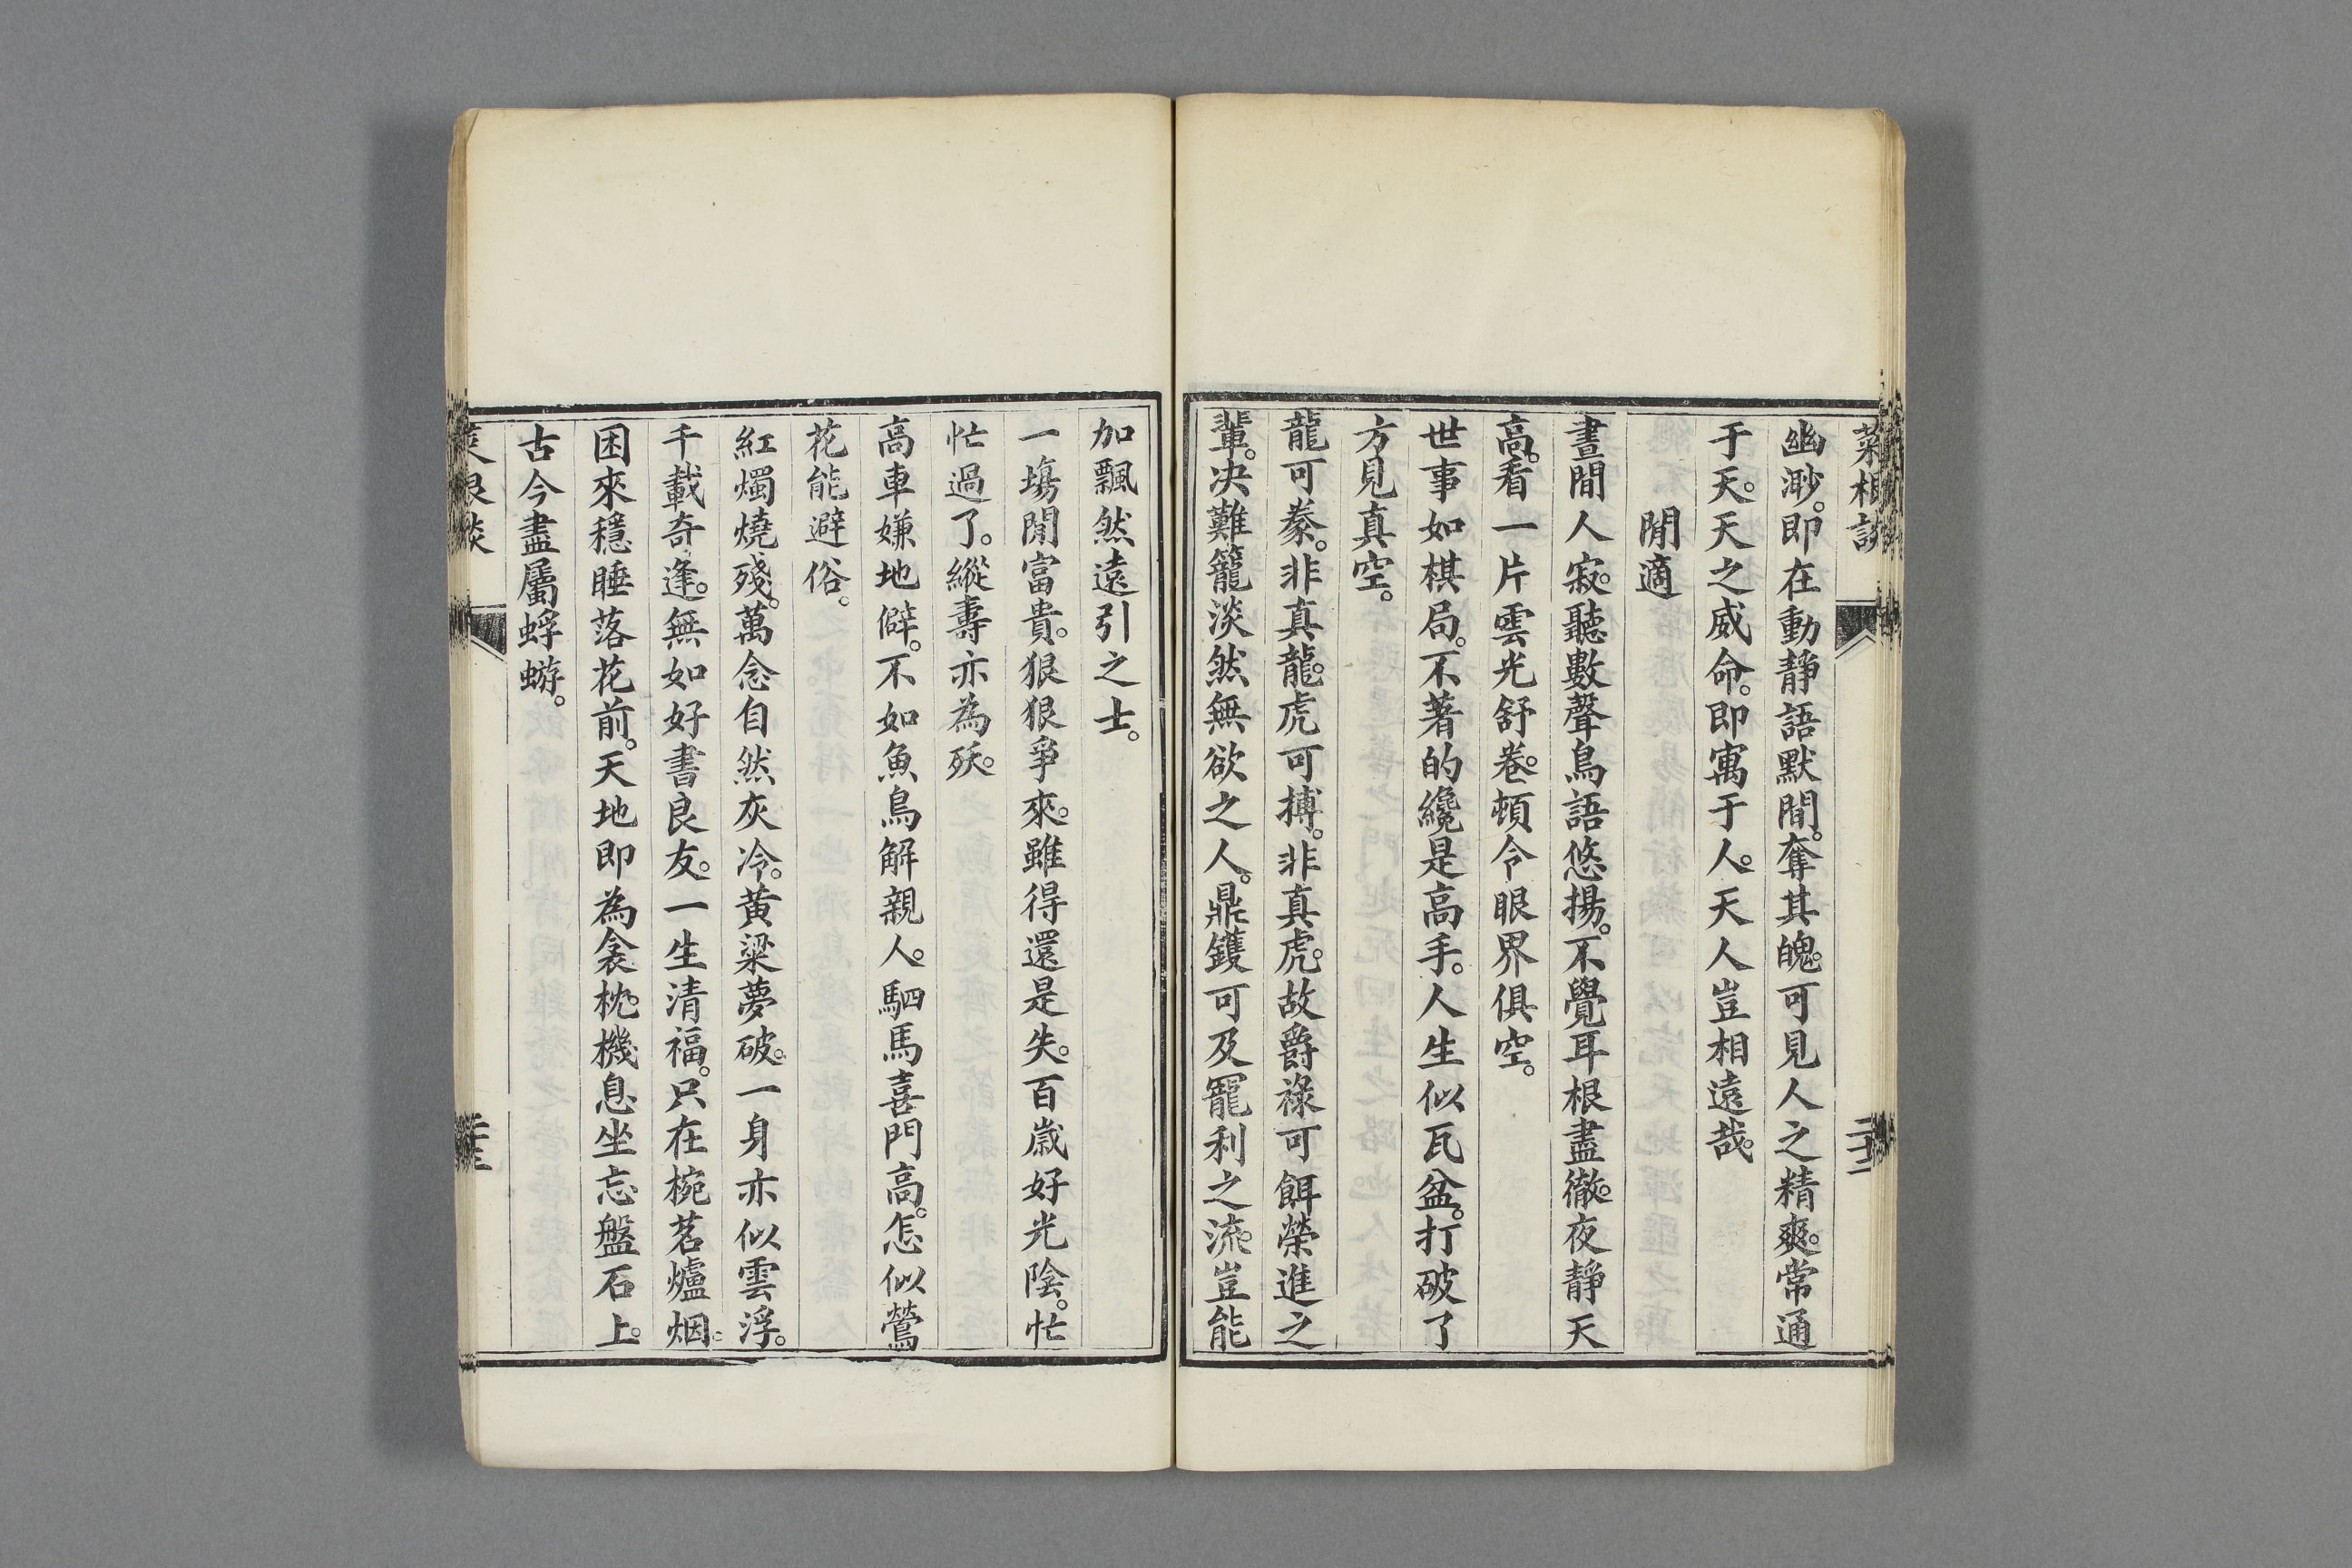 菜根談
二十二
幽渺。即在動靜語默間。奪其魄。可見人之精爽。常通
于天。天之威命。即寓于人。天人豈相遠哉。
閒適
晝閒人寂。聽數聲鳥語悠揚。不覺耳根盡徹。夜靜天
高。看一片雲光舒卷。頓令眼界俱空。
世事如棋局。不著的纔是高手。人生似瓦盆。打破了
方見真空。
龍可豢。非真龍。虎可搏。非真虎。故爵祿可餌榮進之
輩。决難籠淡然無欲之人。鼎鑊可及寵利之流。豈能
加飄然遠引之士。
一塲閒富貴。狠狠爭來。雖得還是失。百歲好光陰。忙
忙過了。縱壽亦為殀。
高車嫌地僻。不如魚鳥解親人。駟馬喜門高。怎似鶯
花能避俗。
紅燭燒殘。萬念自然灰冷。黃粱夢破。一身亦似雲浮。
千載奇逢。無如好書良友。一生清福。只在椀茗爐烟。
困來穩睡落花前。天地即為衾枕。機息坐忘盤石上。
古今盡屬蜉蝣。
菜根談
二十三